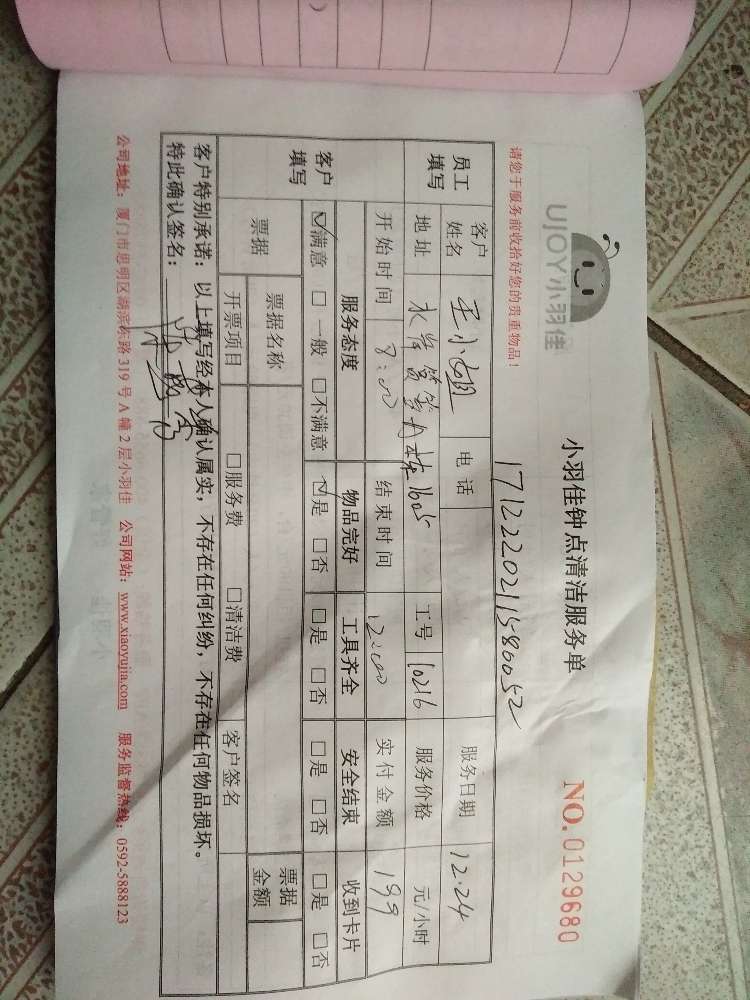 UJOY小羽佳
小羽佳钟点清洁服务单
NO.0129680
请您于服务前收拾好您的贵重物品！
1712220211580052
员工填写 客户姓名 王小姐 电话 服务日期 12.24
地址 水岸 1605 工号 10216 服务价格 元/小时
客户填写 开始时间 8:00 结束时间 12:00 实付金额 199
服务态度 物品完好 工具齐全 安全结束 收到卡片
☑满意 □一般 □不满意 ☑是 □否 □是 □否 □是 □否 □是 □否
票据 票据名称 客户签名 票据金额
开票项目 □服务费 □清洁费
客户特别承诺：以上填写经本人确认属实，不存在任何纠纷，不存在任何物品损坏。
特此确认签名：
公司地址：厦门市思明区湖滨东路319号A幢2层小羽佳 公司网站：www.xiaoyujia.com 服务监督热线：0592-5888123